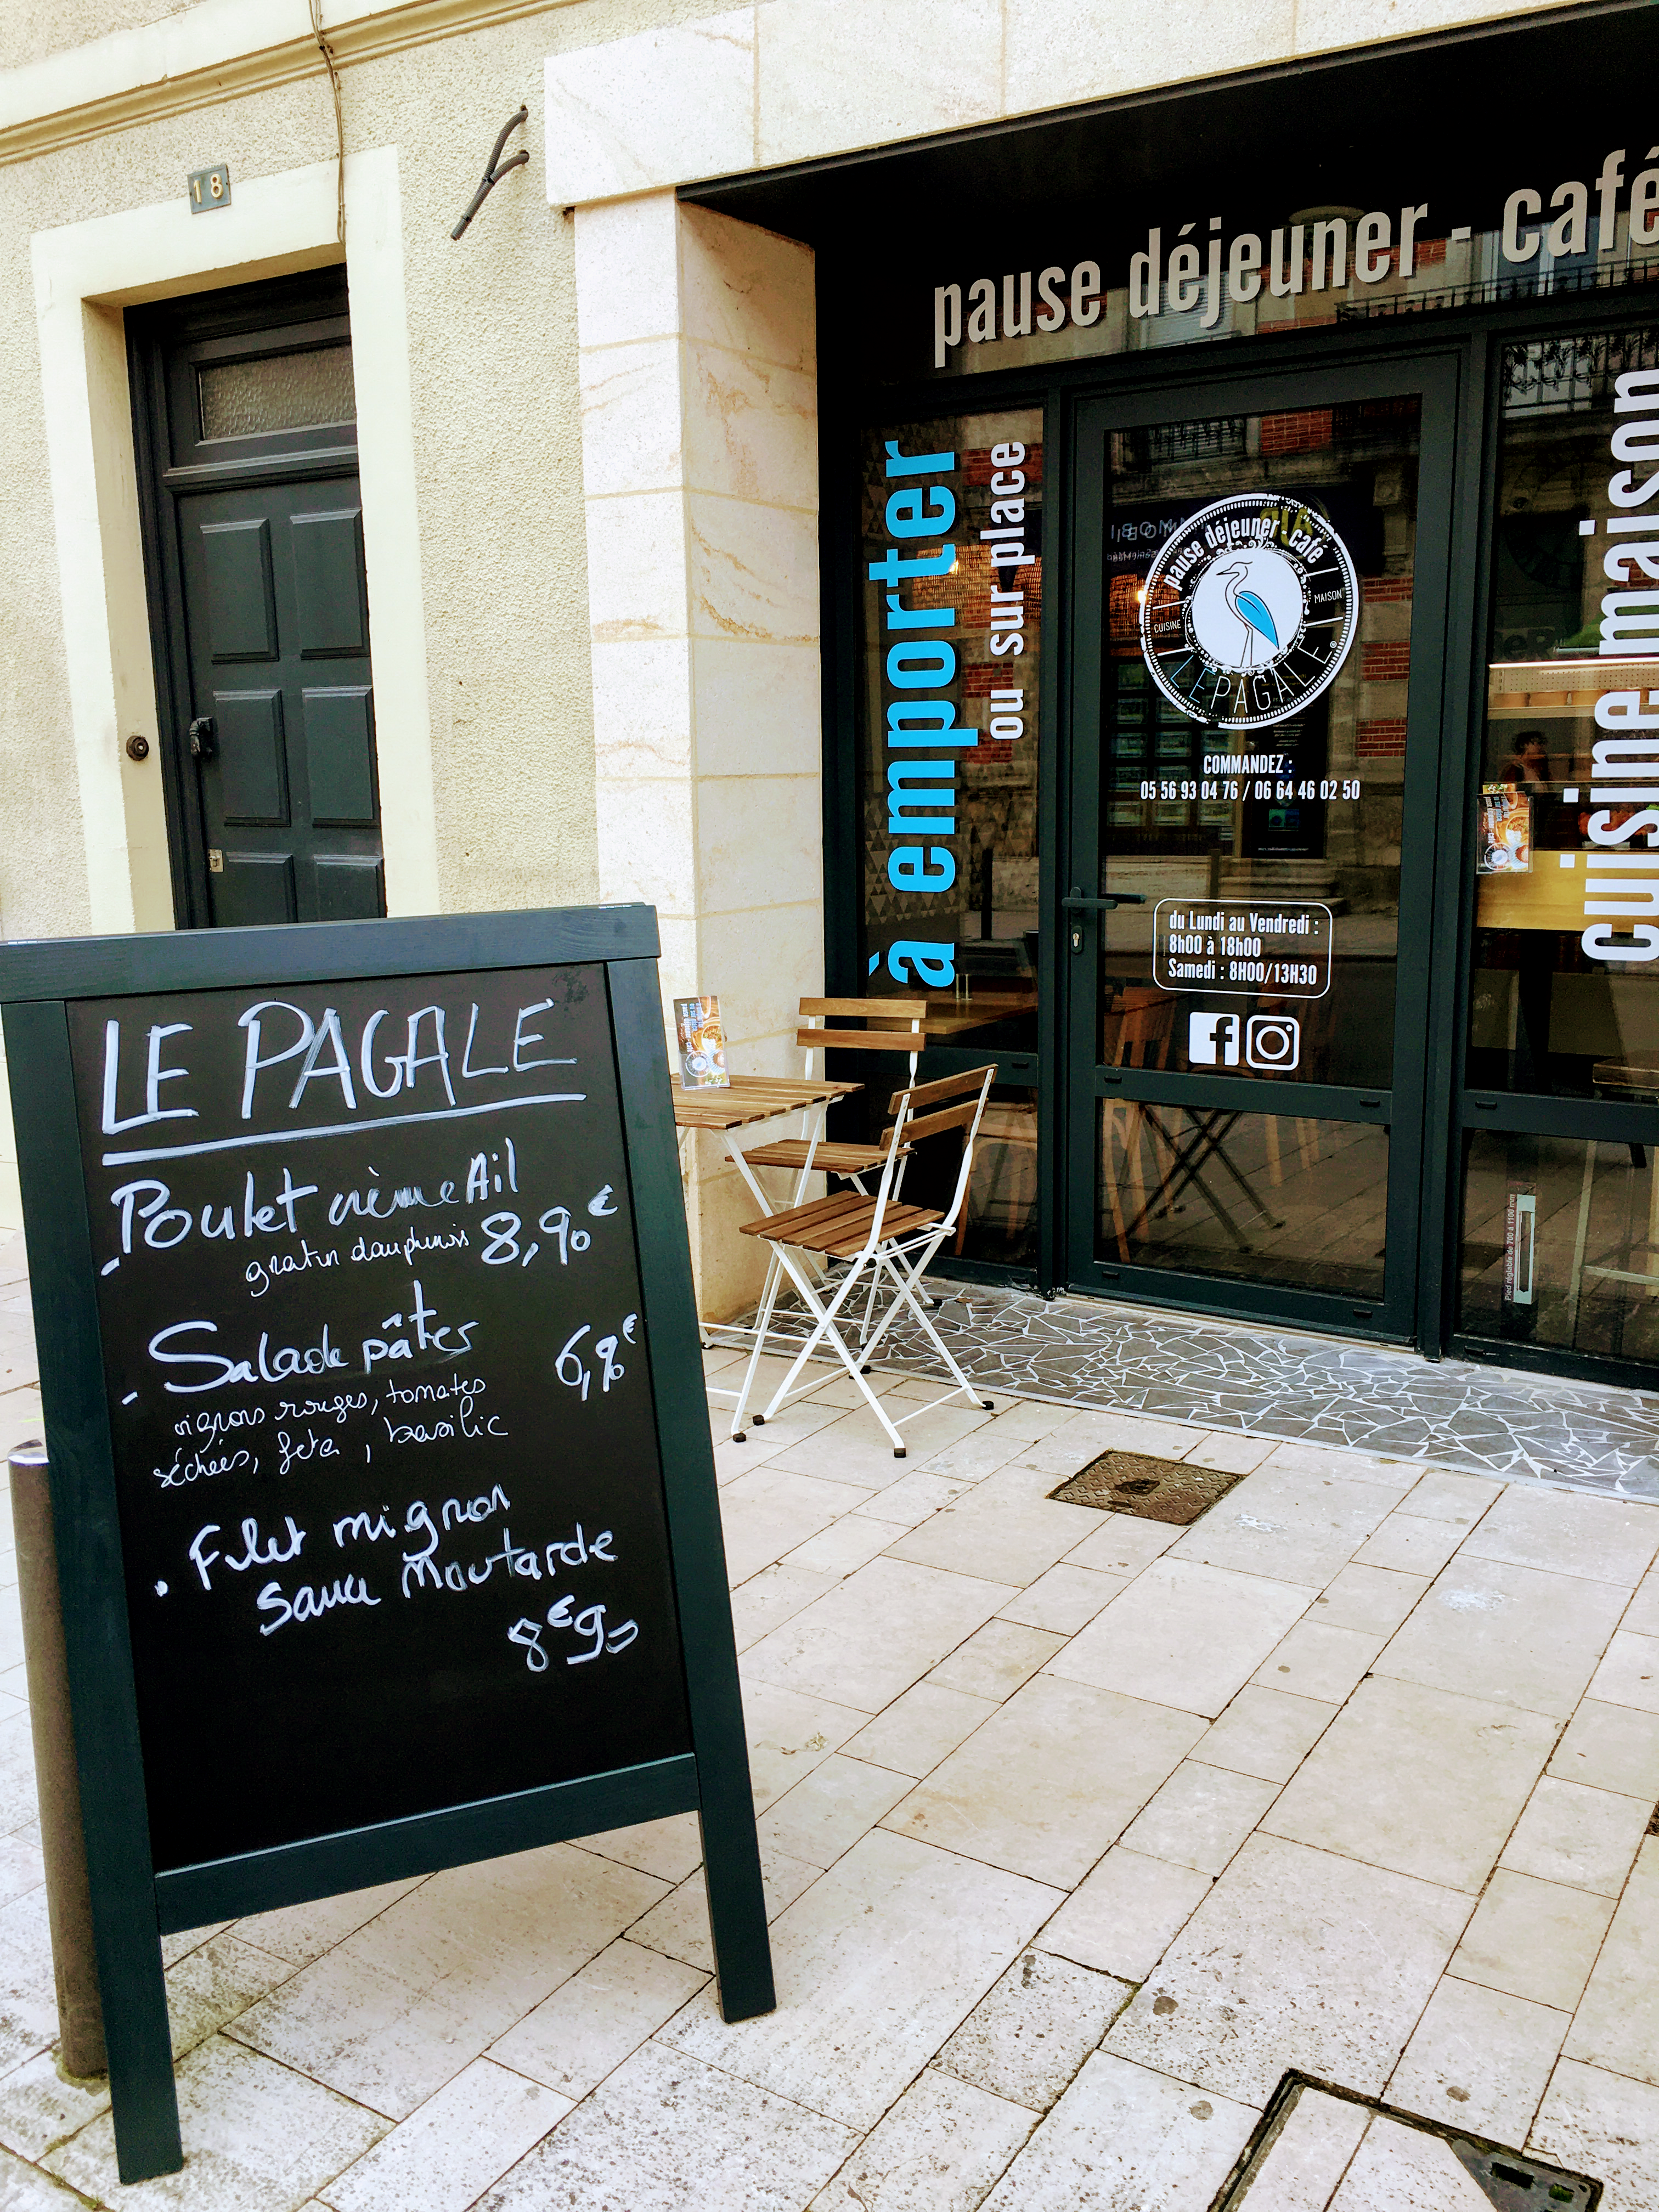 18
pause déjeuner - café
à emporter
ou sur place
pause déjeuner - café
CUISINE
MAISON
LEPAGALE
COMMANDEZ :
05 56 93 04 76 / 06 64 46 02 50
du Lundi au Vendredi :
8h00 à 18h00
Samedi : 8H00/13H30
cuisine maison
Pied réglable de 700 à 1100 mm
LE PAGALE
- Poulet crème Ail
gratin dauphinois 8,90€
- Salade pâtes 6,90€
oignons rouges, tomates
séchées, feta, basilic
. Filet mignon
Sauce Moutarde
8€90